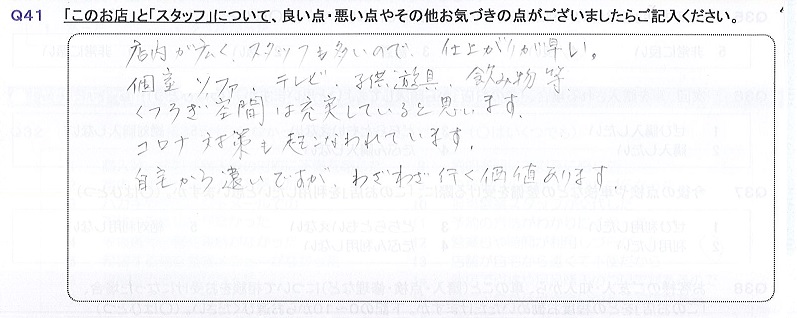 Q41 「このお店」と「スタッフ」について、良い点・悪い点やその他お気づきの点がございましたらご記入ください。
店内が広く、スタッフも多いので、仕上がりが早い。
個室、ソファ、テレビ、子供遊具、飲み物等
くつろぎ空間は充実していると思います。
コロナ対策も起こなわれています。
自宅から遠いですが わざわざ行く価値あります